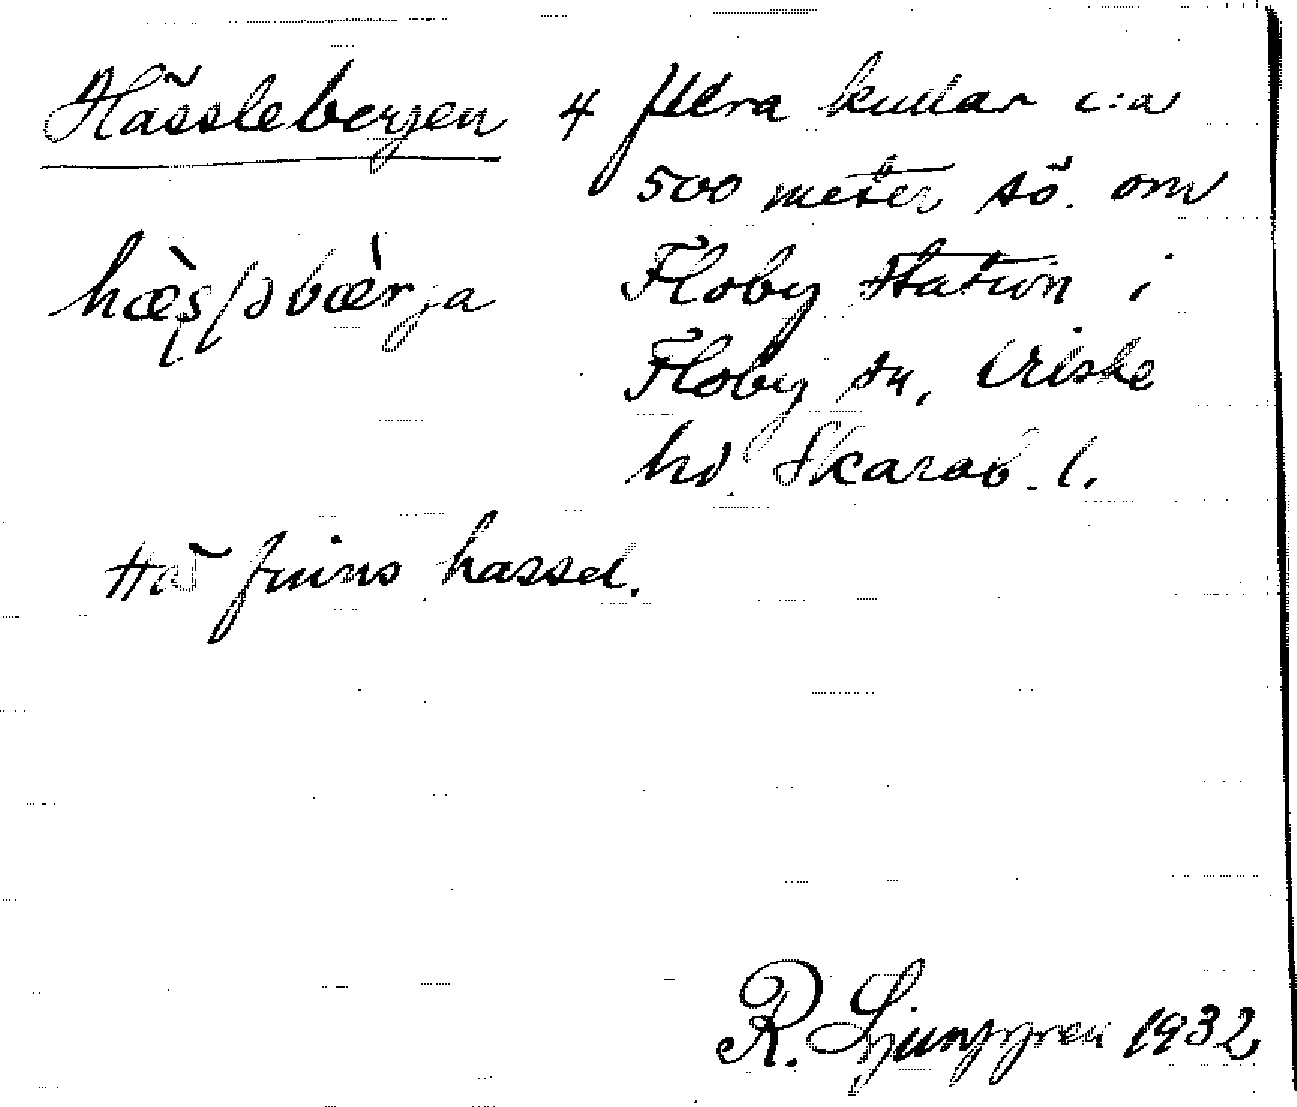 Hässlebergen 4 flera kullar c:a
500 meter sö. om
hæ̀şļəbæ̀rja Floby station i
Floby sn, Vilske
hd Skarab. l.
Här finns hassel.
R. Ljunggren 1932